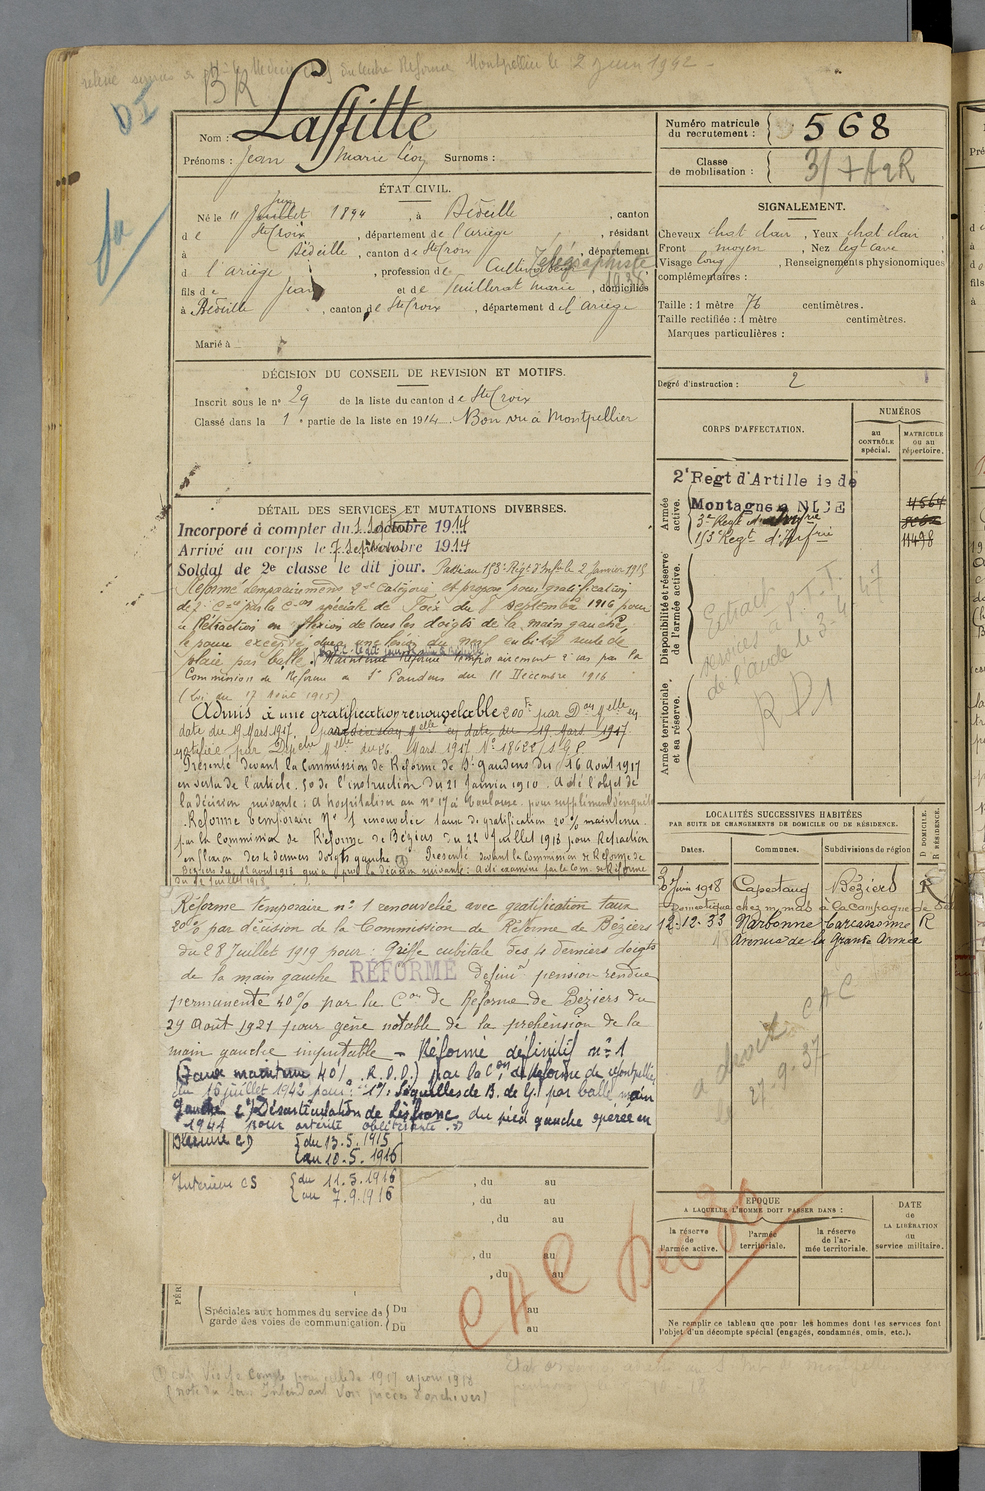 relevé services
le Médecin Chef du Centre Réforme Montpellier le 2 Juin 1942
BR
Nom : Laffitte
Prénoms : Jean Marie Léon Surnoms :
ÉTAT CIVIL.
Né le 11 Juillet Juin 1894, à Bédeille, canton
de Ste Croix, département de l'Ariège, résidant
à Bédeille, canton de Ste Croix, département
d l'Ariège, profession de Cultivateur Télégraphiste 1938
fils de Jean et de Teuillerat Marie, domiciliés
à Bédeille, canton de Ste Croix, département de l'Ariège
Marié à
DÉCISION DU CONSEIL DE REVISION ET MOTIFS.
Inscrit sous le n° 29 de la liste du canton de Ste Croix
Classé dans la 1e partie de la liste en 1914. Bon vu à Montpellier
DÉTAIL DES SERVICES ET MUTATIONS DIVERSES.
Incorporé à compter du 1 Septembre 1914
Arrivé au corps le 7 Septembre 1914
Soldat de 2e classe le dit jour. Passé au 153e Régt d'Inf le 2 Janvier 1915
Réformé temporairement 2me Catégorie et proposé pour gratification
de 7e Cie par la Con spéciale de Foix du 8 septembre 1916 pour
le Rétraction en flexion de tous les doigts de la main gauche,
le pouce excepté, due a une lésion du nerf cubital suite de
plaie par balle. Maintenu Réformé temporairement 2e cas par la
Commission de Réforme de St Gaudens du 11 Décembre 1916
(Loi du 17 Août 1915)
Admis à une gratification renouvelable 200f par Don Melle en
date du 19 Mars 1917 par décision Melle en date du 19 Mars 1917
notifiée par Dépêche Melle du 26 Mars 1917 N° 18622/1 G.P.
Présenté devant la Commission de Réforme de St Gaudens du 16 Août 1917
en vertu de l'article 50 de l'instruction du 21 Janvier 1910. A été l'objet de
la décision suivante : à hospitaliser au n° 17 à Toulouse pour supplément d'enquête
Réforme temporaire N° 1 renouvelée taux de gratification 20% maintenu
par la Commission de Réforme de Béziers du 22 Juillet 1918 pour Rétraction
en flexion des 4 derniers doigts gauche (1) Présenté devant la Commission de Réforme de
Béziers du 12 août 1918 qui a pris la décision suivante : a été examiné par la Com. de Réforme
du 22 Juillet 1918
Réforme temporaire n° 1 renouvelée avec gratification taux
20% par décision de la Commission de Réforme de Béziers
du 28 Juillet 1919 pour Griffe cubitale des 4 derniers doigts
de la main gauche RÉFORMÉ définif pension rendue
permanente 40% par la Con de Réforme de Béziers du
29 Août 1921 pour gêne notable de la préhension de la
main gauche imputable - Réformé définitif n° 1
(Taux maintenu 40% R.D.D.) par la Con de Réforme de Montpellier
du 16 juillet 1942 pour : 1°/ Séquelles de B. de G. par balle main
gauche 2°/ Désarticulation de Lisfranc du pied gauche opérée en
1941 pour artérite oblitérante.
Blessure CD { du 13.5.1915
{ au 10.5.1916
Intérieur CS { du 11.5.1916
{ au 7.9.1916
, du au
, du au
, du au
, du au
, du au
PÉR
Spéciales aux hommes du service de garde des voies de communication. { Du au
Du au
Numéro matricule du recrutement : 568
Classe de mobilisation : 3/7 A2R
SIGNALEMENT.
Cheveux chat clair, Yeux chat clair
Front moyen, Nez legt cave,
Visage long, Renseignements physionomiques
complémentaires :
Taille : 1 mètre 76 centimètres.
Taille rectifiée : 1 mètre centimètres.
Marques particulières :
Degré d'instruction : 2
CORPS D'AFFECTATION.
NUMÉROS
au CONTRÔLE spécial.
MATRICULE ou au répertoire.
Armée active.
2e Regt d'Artillerie de
Montagne à NICE 4564
3e Regt d'Infrie
153e Regt d'Infrie 11498
Disponibilité et réserve de l'armée active.
Extrait
services à P.T.T.
de l'aude le 3-4-47
Armée territoriale et sa réserve.
RD1
LOCALITÉS SUCCESSIVES HABITÉES
PAR SUITE DE CHANGEMENTS DE DOMICILE OU DE RÉSIDENCE.
Dates. Communes. Subdivisions de région D DOMICILE. R RÉSIDENCE.
30 Juin 1918 Capestang Béziers R
Domestique chez à la Campagne de
12-12-33 Narbonne Carcassonne R
Avenue de la Grande Armée
a droit CAC
27-9-37
ÉPOQUE
A LAQUELLE L'HOMME DOIT PASSER DANS :
la réserve de l'armée active.
l'armée territoriale.
la réserve de l'armée territoriale.
DATE de LA LIBÉRATION du service militaire.
CAC Dec 30
Ne remplir ce tableau que pour les hommes dont les services font
l'objet d'un décompte spécial (engagés, condamnés, omis, etc.).
(note du Sous Intendant voir pièces d'archives)